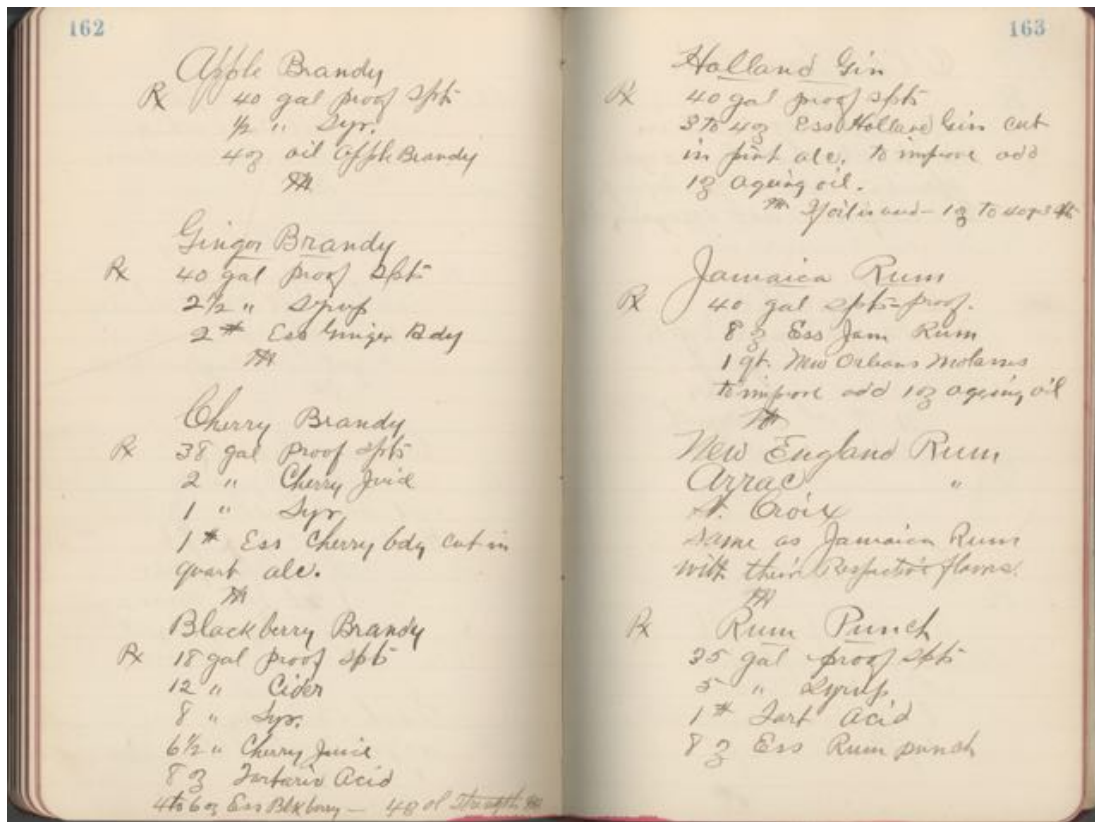 162
Apple Brandy
Rx 40 gal proof spts
1/2 " Syr.
4oz oil Apple Brandy
M
Ginger Brandy
Rx 40 gal proof spts
2 1/2 " Syrup
2# Ess Ginger Bdy
M
Cherry Brandy
Rx 38 gal proof spts
2 " Cherry Juice
1 " Syr.
1# Ess Cherry bdy cut in
quart alc.
M
Blackberry Brandy
Rx 18 gal proof spts
12 " Cider
8 " Syr.
6 1/2 " Cherry Juice
8 oz Tartaric Acid
4 to 6 oz Ess Blkberry — 4 oz oil Strength M
163
Holland Gin
Rx 40 gal proof spts
3 to 4 oz Ess Holland Gin cut
in pint alc. to improve add
1 oz ageing oil.
M If oil is used — 1 oz to 40
Jamaica Rum
Rx 40 gal spts-proof.
8 oz Ess Jam Rum
1 qt. New Orleans Molasses
to improve add 1 oz ageing oil
M
New England Rum
Arrac "
St. Croix
Same as Jamaica Rum
with their Respective flavors.
M
Rx Rum Punch
35 gal proof spts
5 " Syrup
1# Tart Acid
8 oz Ess Rum punch